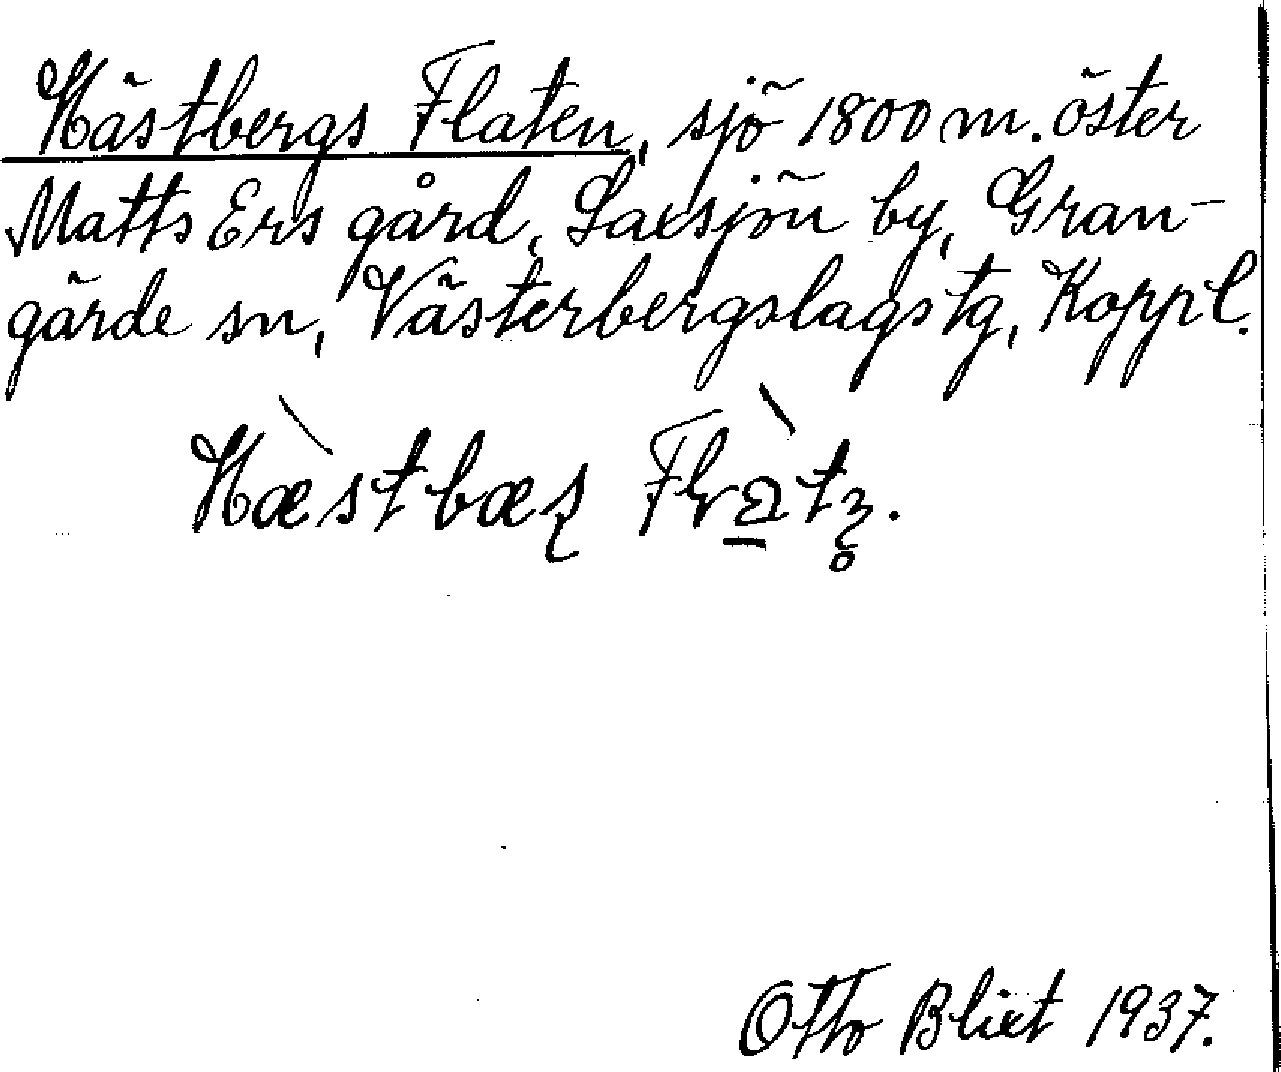 Hästbergs Flaten, sjö 1800 m. öster
Matts Ers gård, Laxsjön by, Gran-
gärde sn, Västerbergslags tg, Kopp. l.
Hæstbæs
Otto Blixt 1937.